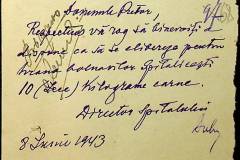 Domnule Pretor,
Respectuos vă rog să binevoiți a
dispune ca să se elibereze pentru
hrana bolnavilor spitalicești
10 (Zece) Kilograme carne.
Directorul Spitalului
8 Iunie 1943